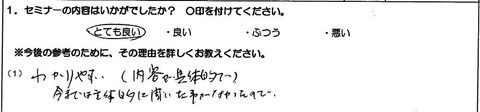 1. セミナーの内容はいかがでしたか? ○印を付けてください。
とても良い ・良い ・ふつう ・悪い
※今後の参考のために、その理由を詳しくお教えください。
(1) わかりやすい (内容が具体的で)
今までは主体的に聞いた事がなかったので。